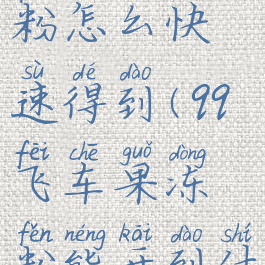 粉怎么快
sù dé dào
速得到(99
fēi chē guǒ dòng
飞车果冻
fěn néng kāi dào shí
粉能开到什